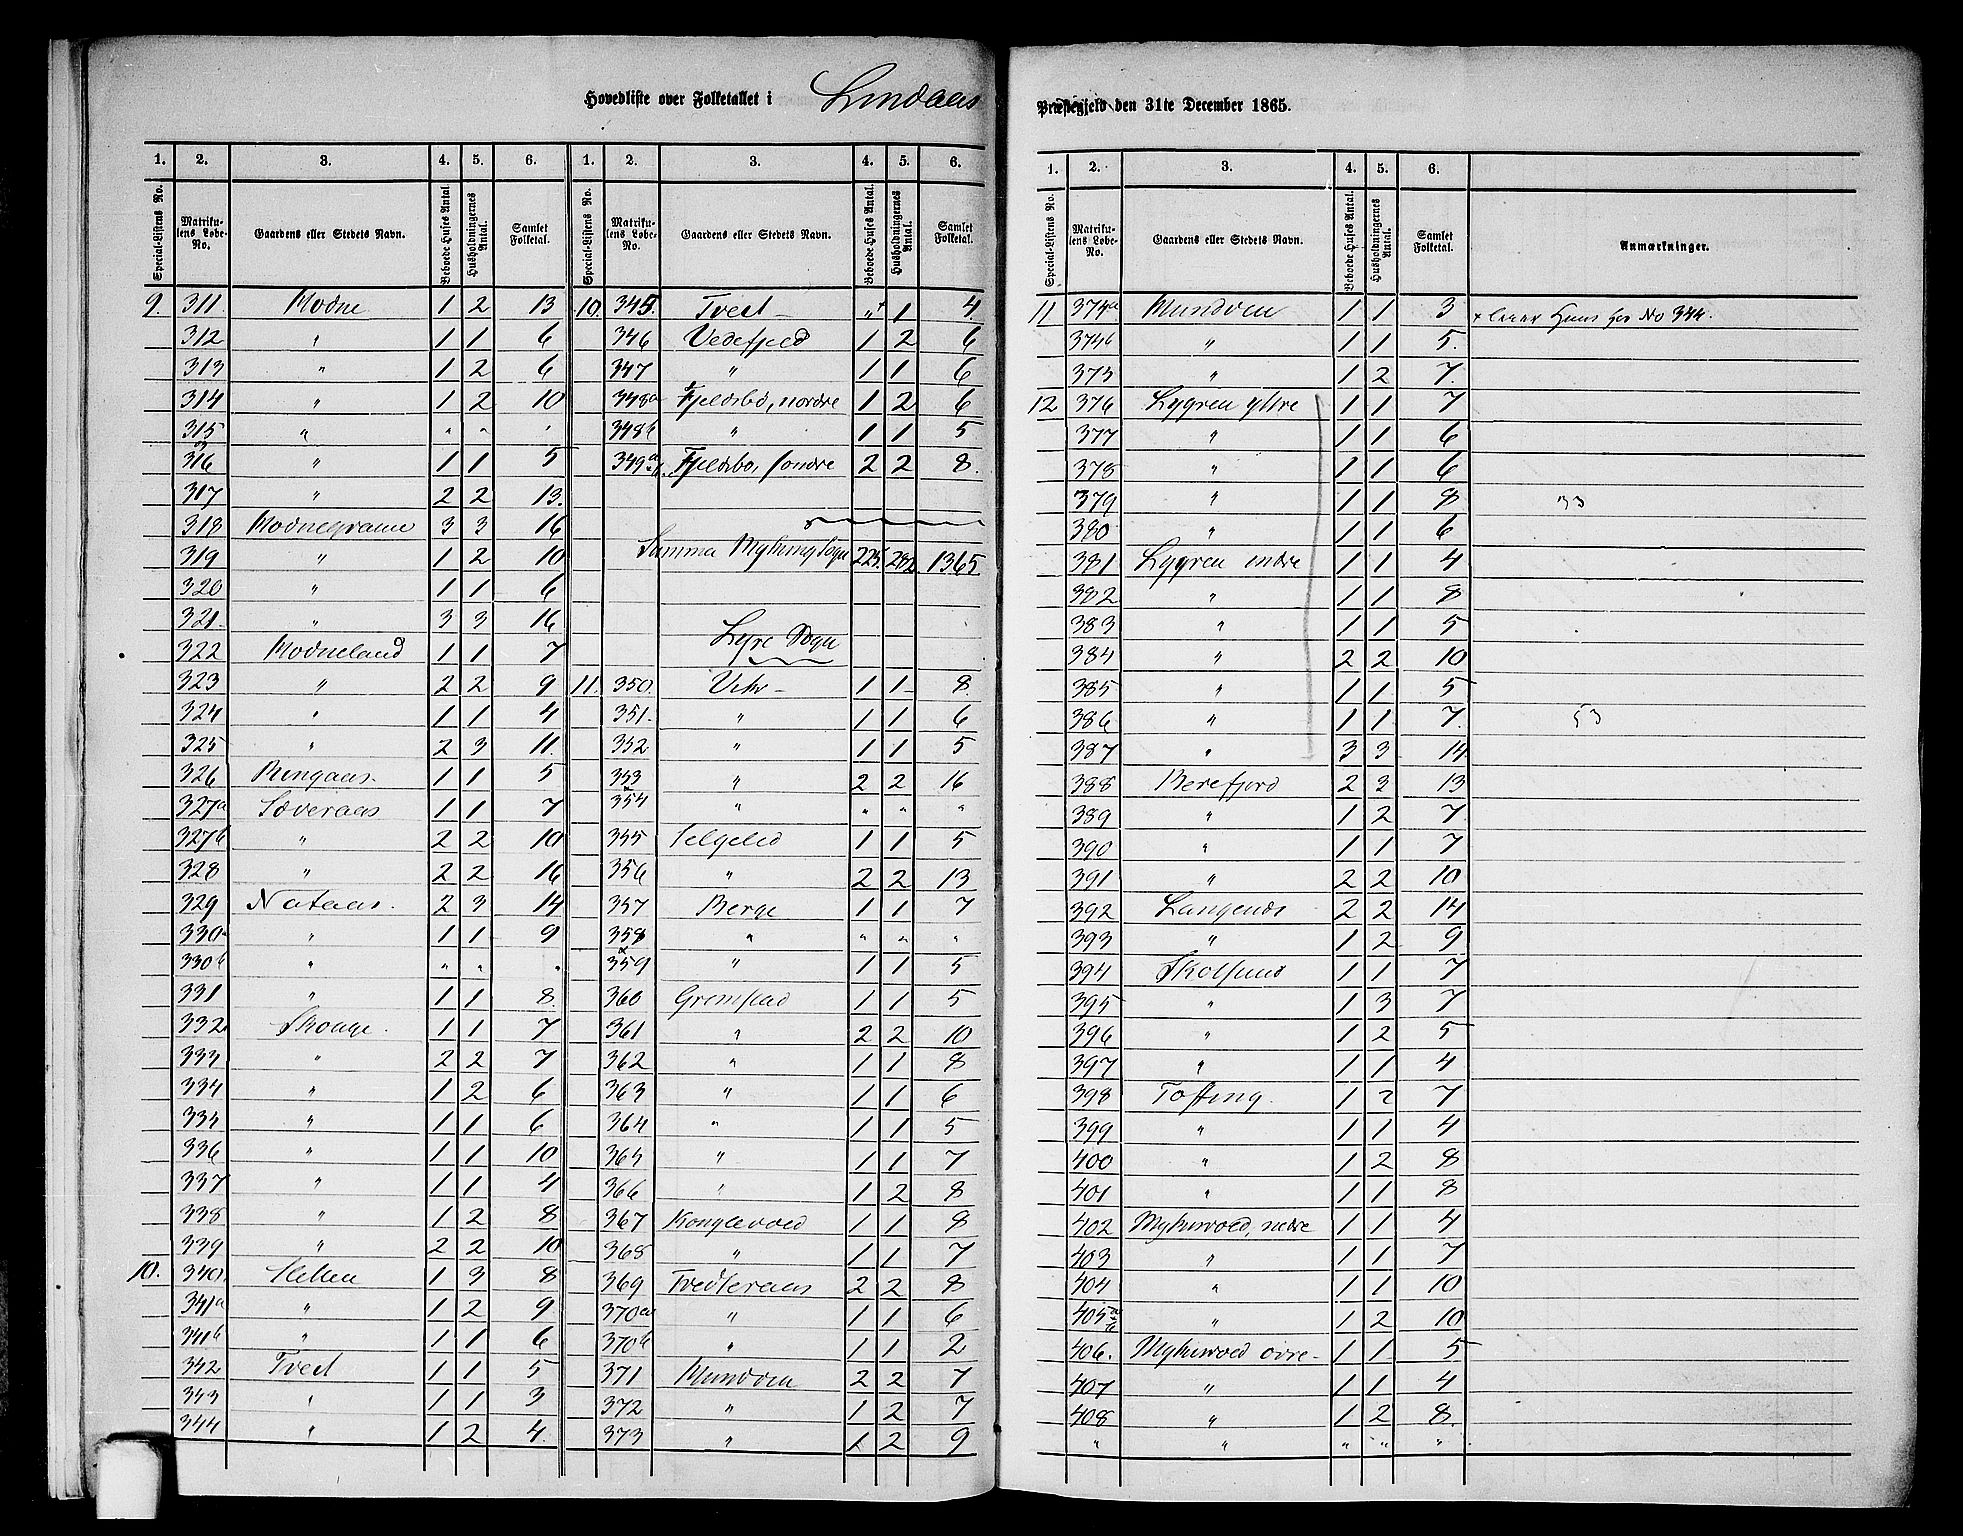 Hovedliste over Folketallet i Lindaas Præstegjeld den 31te December 1865.
1. 2. 3. 4. 5. 6. 1. 2. 3. 4. 5. 6.
Special-Listens No. Matrikulens Løbe-No. Gaardens eller Stedets Navn. Beboede Huses Antal. Husholdningernes Antal. Samlet Folketal. Special-Listens No. Matrikulens Løbe-No. Gaardens eller Stedets Navn. Beboede Huses Antal. Husholdningernes Antal. Samlet Folketal.
9. 311 Modne 1 2 13
312 " 1 1 6
313 " 1 2 6
314 " 1 2 10
315 " " " "
316 " 1 1 5
317 " 2 2 13.
318 Modnegrame 3 3 16
319 " 1 2 10
320 " 1 1 6
321. " 3 3 16
322 Modneland 1 1 7
323 " 2 2 9
324 " 1 1 4
325 " 2 3 11.
326 Ringaas. 1 1 5
327a Sæveraas 1 1 7
327b " 2 2 10
328 " 2 2 16
329 Nataas. 2 3 14
330a " 1 1 9
330b " " " "
331 " 1 1 8.
332 Skouge. 1 1 7
333 " 2 2 7
334 " 1 2 6
335 " 1 1 6
336 " 1 1 10
337 " 1 1 4
338 " 1 2 8
339 " 2 2 10
10. 340. Hellen 1 3 8
341a " 1 2 9
341b " 1 1 6
342 Tveit 1 1 5
343 " 1 1 3
344 " 1 2 4.
10. 345. Tveit - "+ 1 4.
346 Vedefjeld 1 2 6
347 " 1 1 6
348a Fjeldsbø, nordre 1 2 6
348b " 1 1 5
349a b. Fjeldsbø, søndre 2 2 8.
Summa Myking Sogn 225. 282 1365
Lyre Sogn
11. 350. Vikr - 1 1 8.
351. " 1 1 6
352 " 1 1 5
353 " 2 2 16
354 " " " "
355 Selgelid 1 1 5
356 " 2 2 13
357 Berge 1 1 7
358 " " " "
359 " 1 1 5
360 Gremstad 1 1 5
361 " 2 2 10
362 " 1 1 8
363 " 1 1 6
364 " 1 1 5
365 " 1 1 7
366 " 1 2 8
367 Konglevold 1 1 8
368 " 1 1 7
369 Tvedteraas 2 2 8
370a " 1 1 6
370b " 1 1 2
371 Mundven 2 2 7
372 " 1 2 7
373 " 1 2 9
1. 2. 3. 4. 5. 6.
Special-Listens No. Matrikulens Løbe-No. Gaardens eller Stedets Navn. Beboede Huses Antal. Husholdningernes Antal. Samlet Folketal. Anmærkninger.
11 374a Mundven 1 1 3 + Huus hos No 344.
374b " 1 1 5.
375 " 1 2 7.
12 376 Lygren ytre 1 1 7
377 " 1 1 6
378 " 1 1 6
379 " 1 1 8 33
380 " 1 1 6
381 Lygren indre 1 1 4
382 " 1 1 8
383 " 1 1 5
384 " 2 2 10
385 " 1 1 5
386 " 1 1 7. 53
387 " 3 3 14
388 Berefjord 2 3 13
389 " 1 2 7.
390 " 1 1 7
391 " 2 2 10
392 Langenæs 2 2 14
393 " 1 2 9
394 Skolsund 1 1 7
395 " 1 3 7
396 " 1 2 5
397 " 1 1 4
398 Tofting. 1 2 7
399 " 1 1 4
400 " 1 2 8
401 " 1 1 8
402 Mykisvold, nedre 1 1 4
403 " 1 1 7
404 " 1 1 10
405a b " 1 2 10
406. Mykisvold øvre - 1 1 5
407 " 1 1 4
408 " 1 2 8.
" " " " "